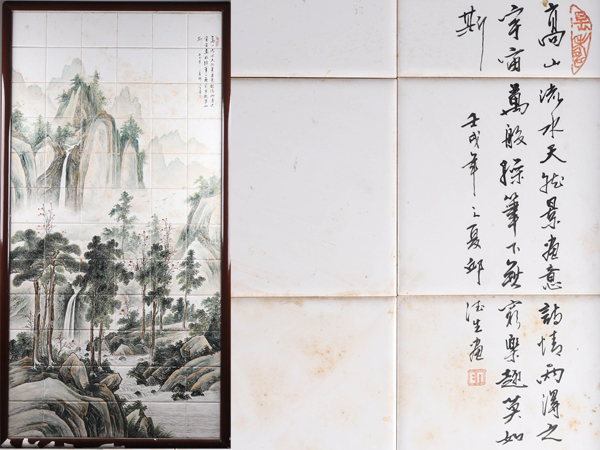 高山流水天然景畫意詩情兩得之
宇宙萬般歸筆下無窮樂趣莫如
斯
壬戌年之夏鄒
德生畫